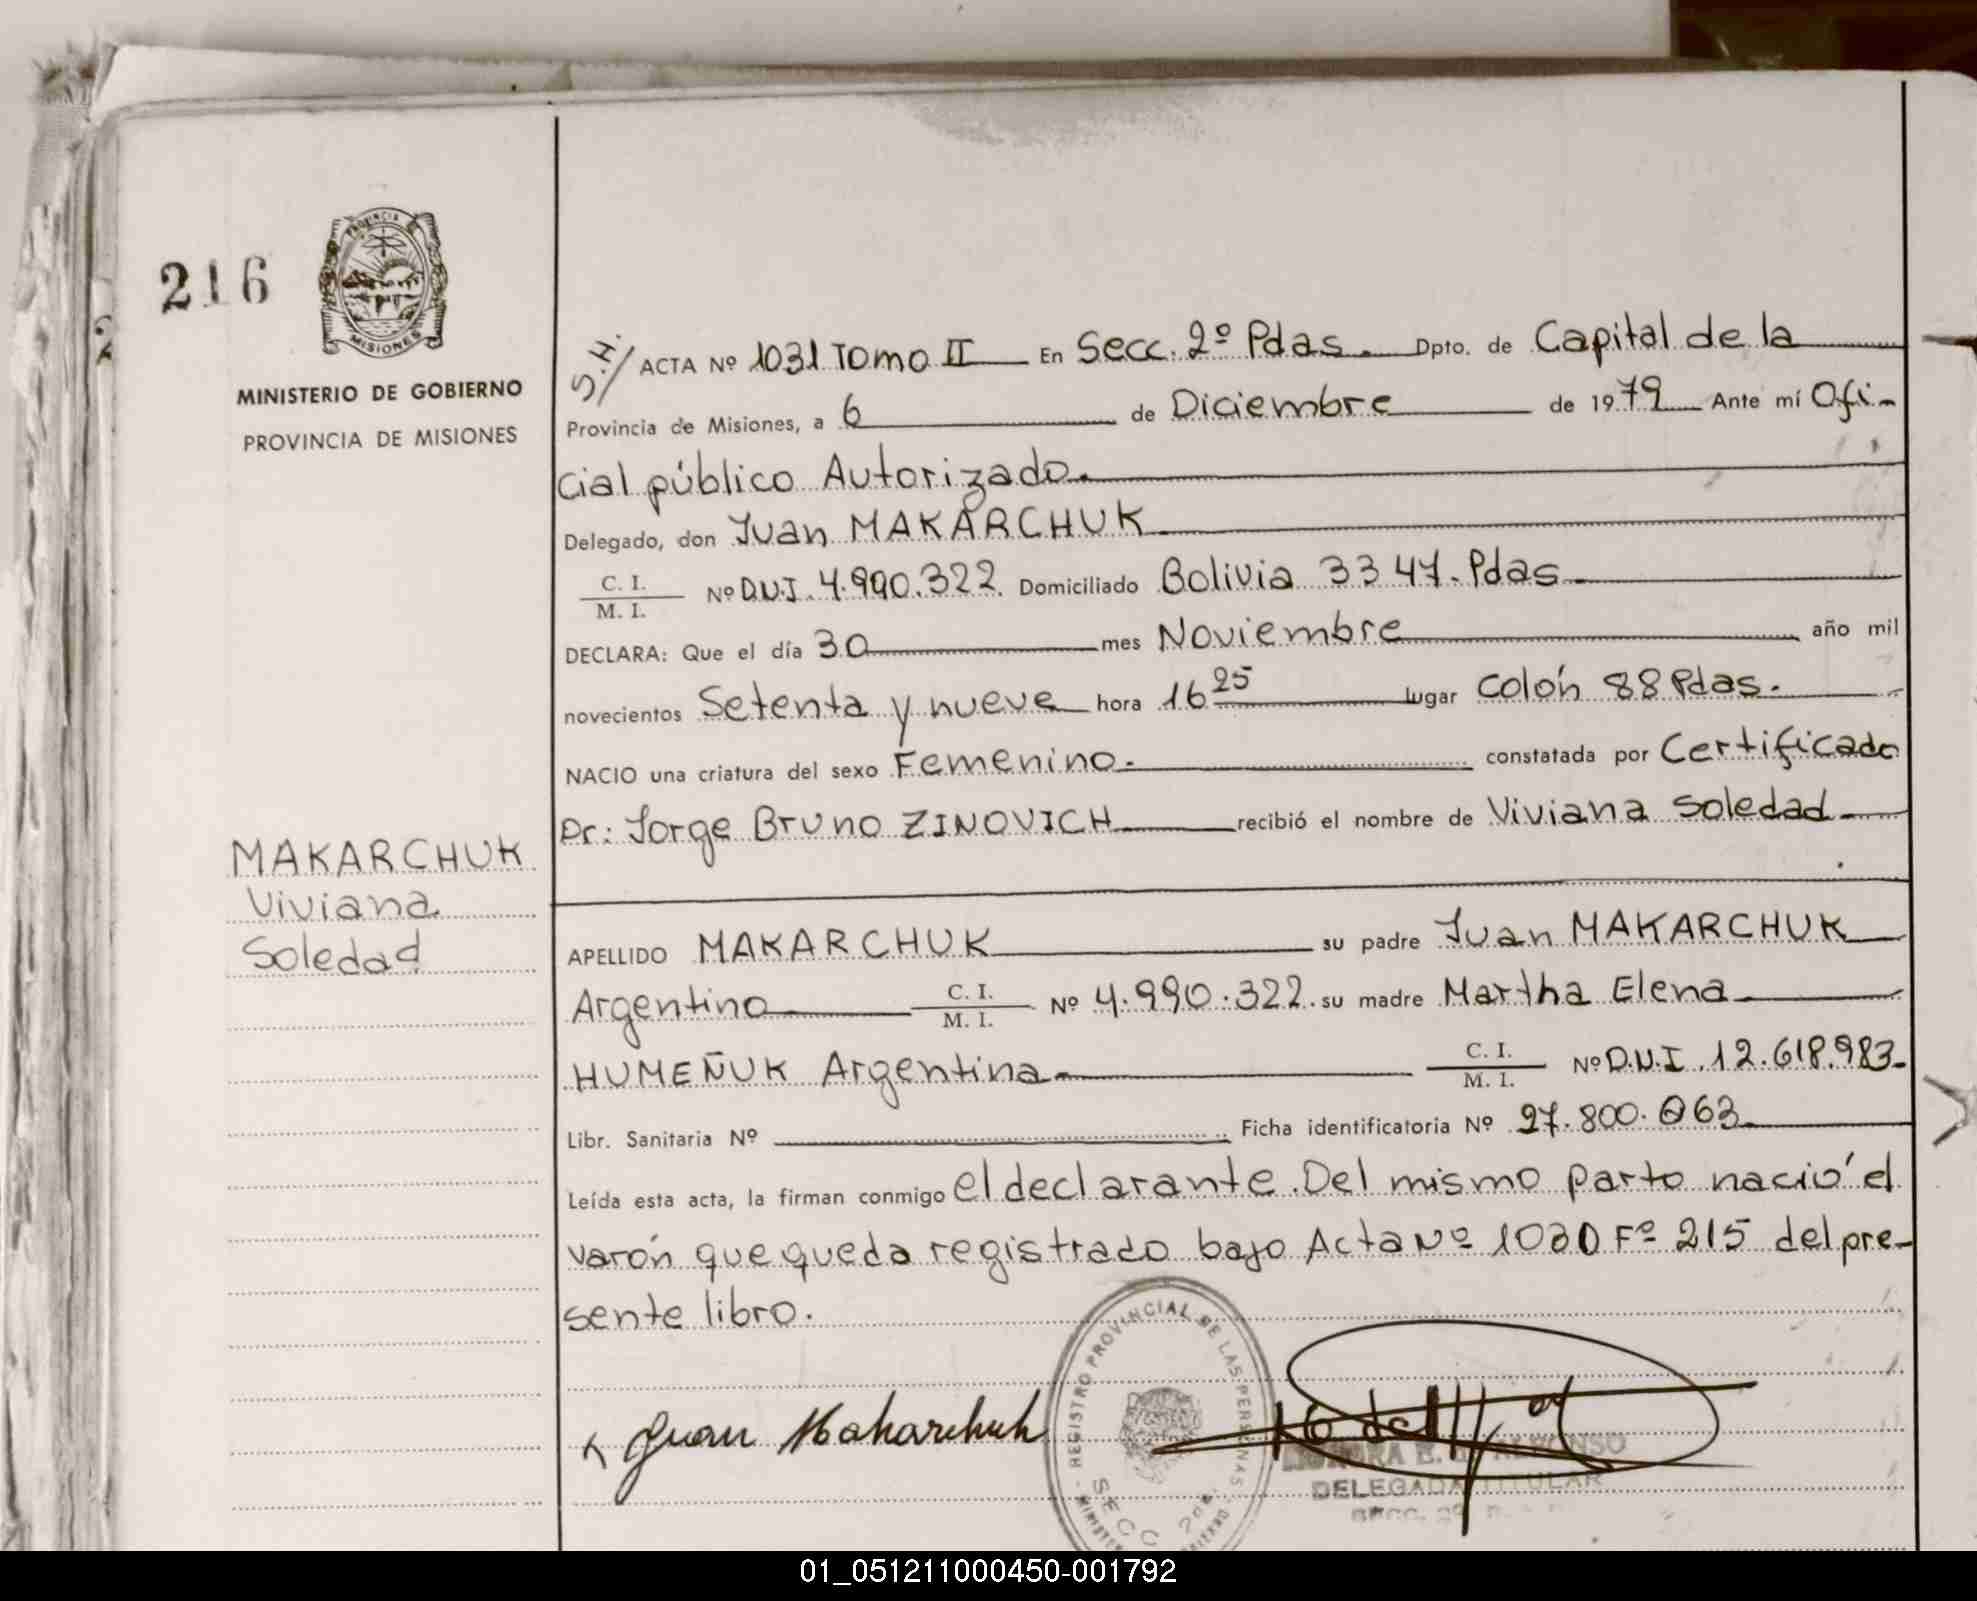 216
PROVINCIA
MISIONES
MINISTERIO DE GOBIERNO
PROVINCIA DE MISIONES
MAKARCHUK
Viviana
Soledad
S.H./ ACTA Nº 1031 Tomo II En Secc. 2º Pdas. Dpto. de Capital de la
Provincia de Misiones, a 6 de Diciembre de 1979 Ante mí Ofi-
cial público Autorizado.
Delegado, don Juan MAKARCHUK
C. I.
M. I. Nº D.N.I. 4.990.322. Domiciliado Bolivia 3347. Pdas.
DECLARA: Que el día 30 mes Noviembre año mil
novecientos Setenta y nueve hora 16 25 lugar Colón 88 Pdas.
NACIO una criatura del sexo Femenino. constatada por Certificado
Dr: Jorge Bruno ZINOVICH recibió el nombre de Viviana Soledad
APELLIDO MAKARCHUK su padre Juan MAKARCHUK
Argentino C. I. M. I. Nº 4.990.322. su madre Martha Elena
HUMEÑUK Argentina C. I. M. I. Nº D.N.I. 12.618.983-
Libr. Sanitaria Nº Ficha identificatoria Nº 27.800.063
Leída esta acta, la firman conmigo el declarante. Del mismo parto nació el
varón que queda registrado bajo Acta Nº 1030 Fº 215 del pre-
sente libro.
Juan Makarchuk
REGISTRO PROVINCIAL DE LAS PERSONAS
SECC 2da.
DELEGADA TITULAR
01_051211000450-001792